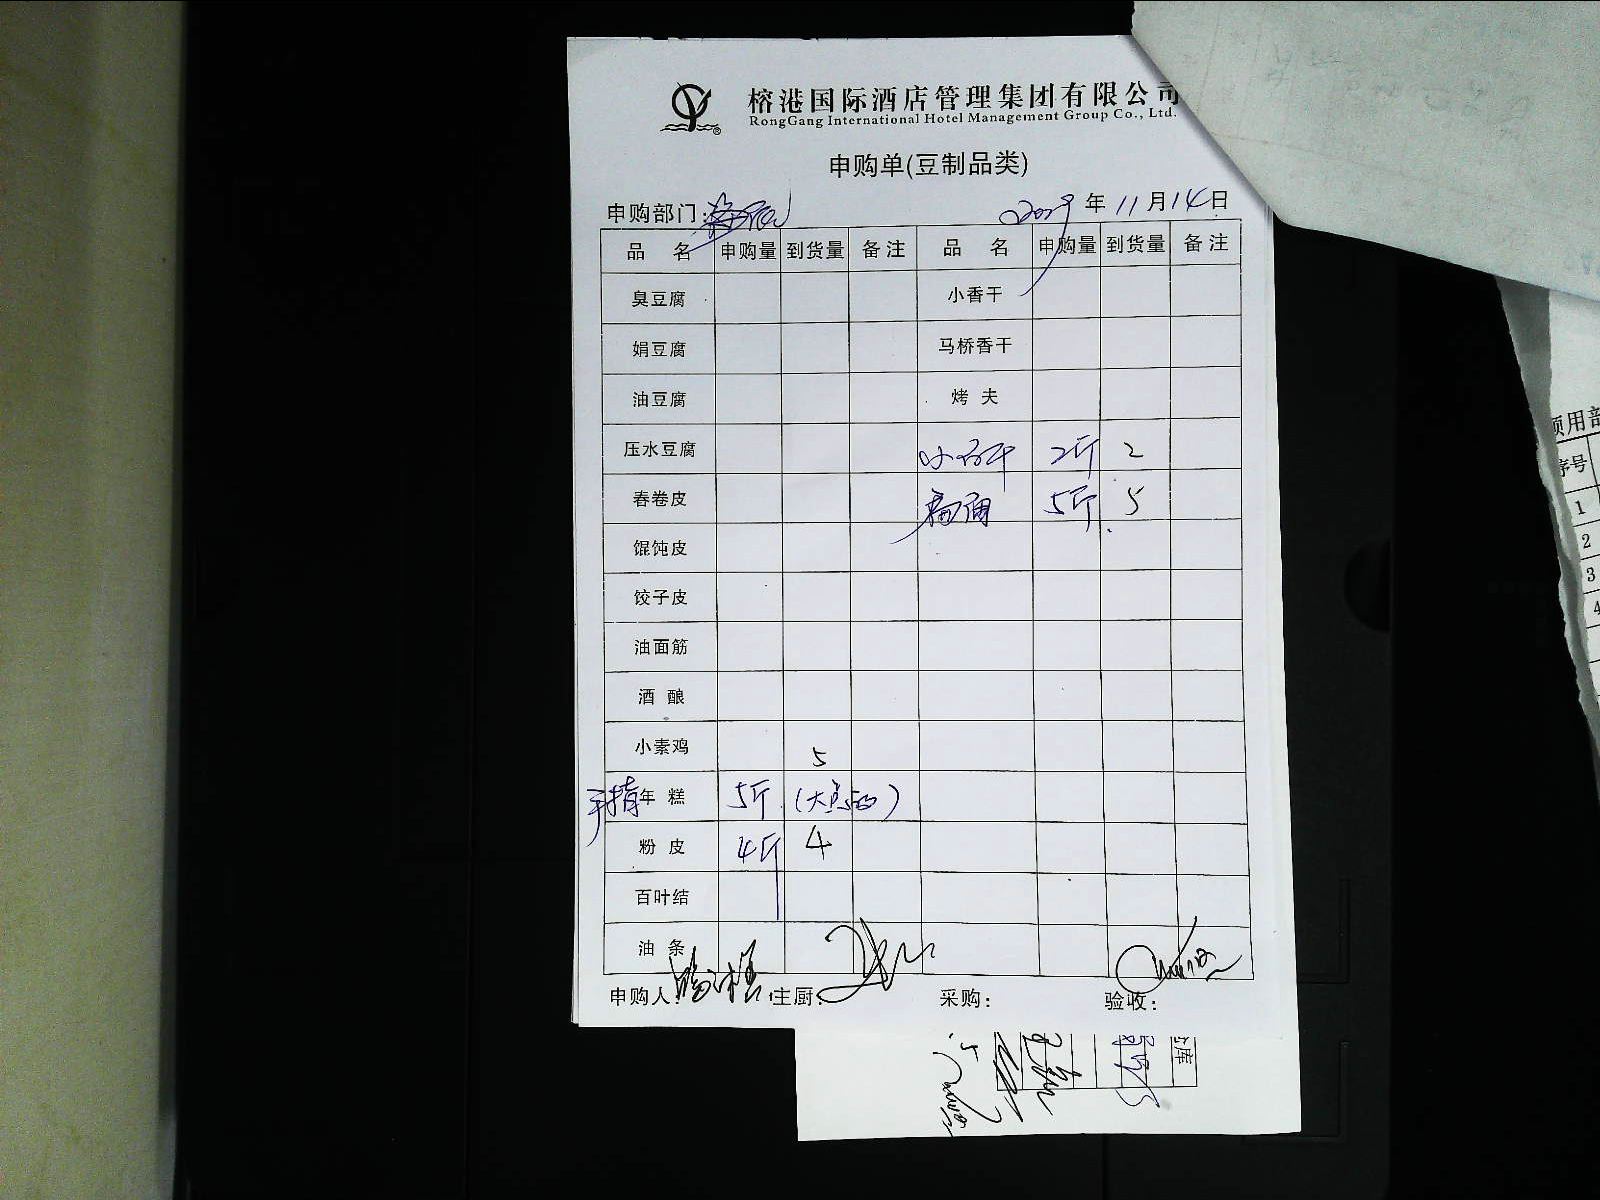 榕港国际酒店管理集团有限公司
RongGang International Hotel Management Group Co., Ltd.
申购单(豆制品类)
申购部门: 年 11 月 14 日
品 名 申购量 到货量 备注 品 名 申购量 到货量 备注
臭豆腐 小香干
娟豆腐 马桥香干
油豆腐 烤 夫
压水豆腐 2斤 2
春卷皮 5斤 5
馄饨皮
饺子皮
油面筋
酒 酿
小素鸡 5
年 糕 5斤
粉 皮 4斤 4
百叶结
油 条
申购人: 主厨: 采购: 验收:
领用部
序号
1
2
3
4